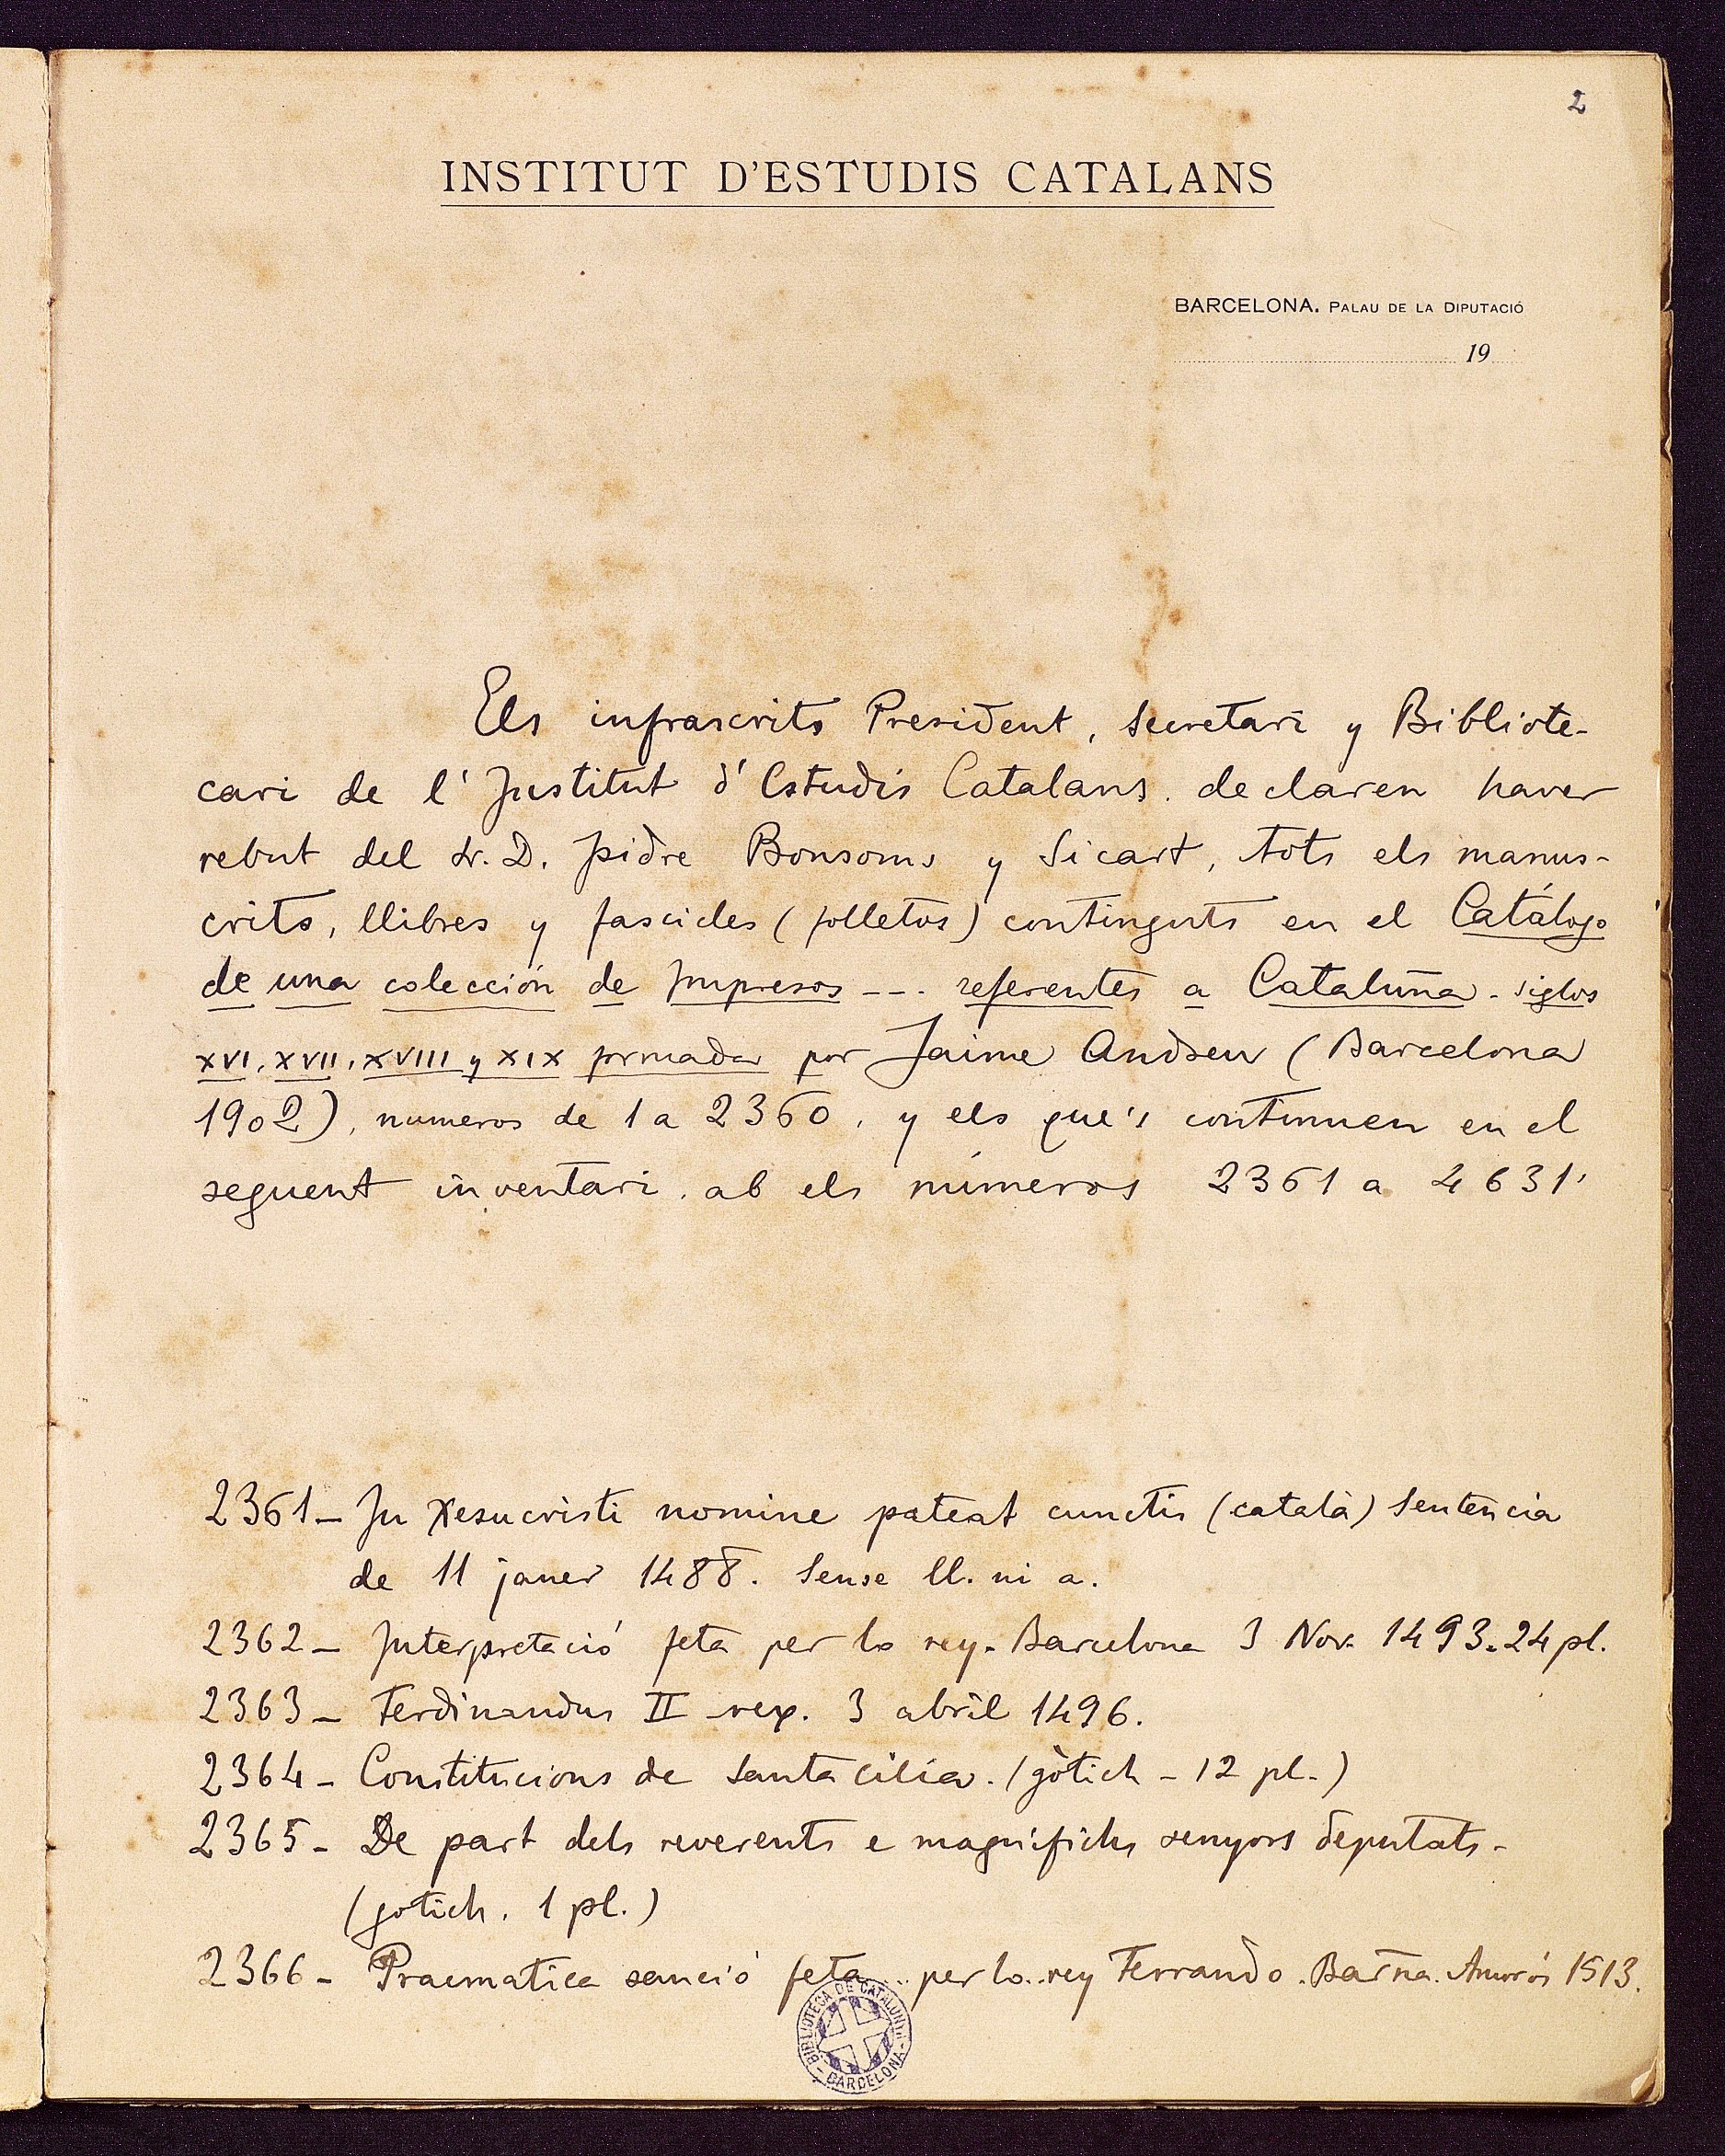 2
INSTITUT D'ESTUDIS CATALANS
BARCELONA. PALAU DE LA DIPUTACIÓ
19
Els infrascrits President, Secretari y Bibliote-
cari de l'Institut d'Estudis Catalans. declaren haver
rebut del Sr. D. Isidre Bonsoms y Sicart, tots els manus-
crits, llibres y fascicles (folletos) continguts en el Catálogo
de una colección de Impresos --- referentes a Cataluña - siglos
XVI, XVII, XVIII y XIX formada por Jaime Andreu (Barcelona
1902), numeros de 1 a 2360, y els que's continuen en el
seguent inventari. ab els números 2361 a 4631.
2361 - In Xesucristi nomine pateat cunctis (català) Sentència
de 11 janer 1488. Sense ll. ni a.
2362 - Interpretació feta per lo rey. Barcelona 3 Nov. 1493. 24 pl.
2363 - Ferdinandus II rex. 3 abril 1496.
2364 - Constitucions de Santacilia. (gòtich - 12 pl.)
2365 - De part dels reverents e magnífichs senyors deputats.
(gotich. 1 pl.)
2366 - Pracmatica sanció feta... per lo rey Ferrando. Barna. Amorós 1513.
BIBLIOTECA DE CATALUNYA - BARCELONA -